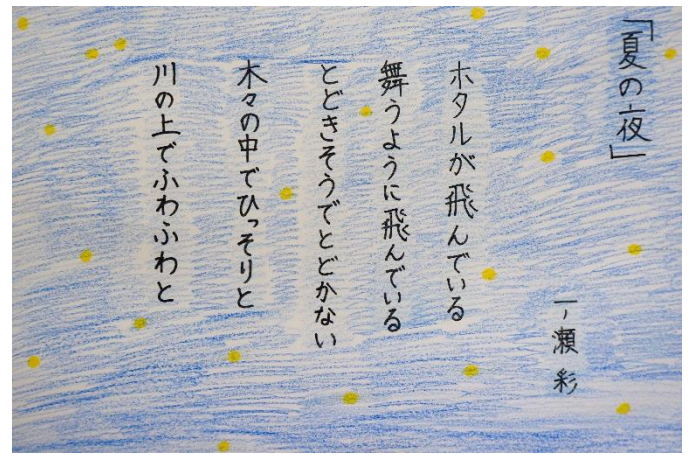 「夏の夜」
一ノ瀬 彩
ホタルが飛んでいる
舞うように飛んでいる
とどきそうでとどかない
木々の中でひっそりと
川の上でふわふわと